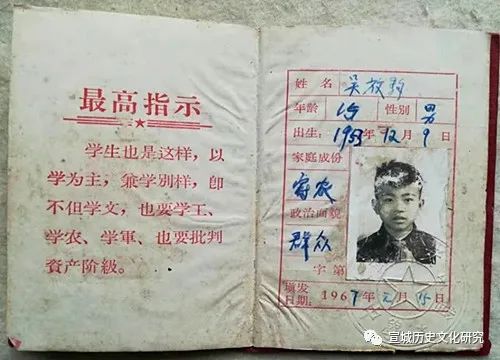 最高指示
学生也是这样，以
学为主，兼学别样，即
不但学文，也要学工、
学农、学軍、也要批判
資产阶級。
姓名 吴
年龄 15 性别 男
出生：1953年12月9日
家庭成份
富农
政治面貌
群众
字第
填发
日期：1967年2月15日
宣城历史文化研究